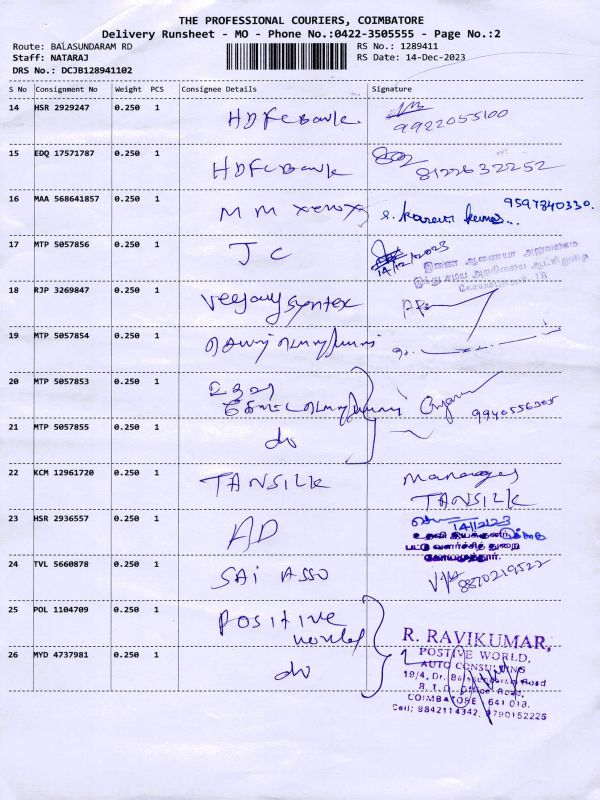 THE PROFESSIONAL COURIERS, COIMBATORE
Delivery Runsheet - MO - Phone No.:0422-3505555 - Page No.:2
Route: BALASUNDARAM RD
RS No.: 1289411
Staff: NATARAJ
RS Date: 14-Dec-2023
DRS No.: DCJB128941102
S No Consignment No Weight PCS Consignee Details Signature
14 HSR 2929247 0.250 1 HDFC Bank
9922055100
15 EDQ 17571787 0.250 1 HDFC Bank 8122632252
16 MAA 568641857 0.250 1 MM xerox 9597840330.
17 MTP 5057856 0.250 1 JC 14/12/2023
18 RJP 3269847 0.250 1
19 MTP 5057854 0.250 1
20 MTP 5057853 0.250 1 உதவி
9940556305
21 MTP 5057855 0.250 1 do
22 KCM 12961720 0.250 1 TANSILK Manager
TANSILK
23 HSR 2936557 0.250 1 AD 14/12/23
உதவி இயக்குனர்
பட்டு வளர்ச்சித் துறை
கோயமுத்தூர்.
24 TVL 5660878 0.250 1 SAI ASSO 8870219522
25 POL 1104709 0.250 1 Positive World
R. RAVIKUMAR,
POSTIVE WORLD,
AUTO CONSULTING
26 MYD 4737981 0.250 1 do
19/4, Dr. Balasundaram Road
R. T. O. Office Road,
COIMBATORE 641 018.
Cell; 9842114342, 9790152225